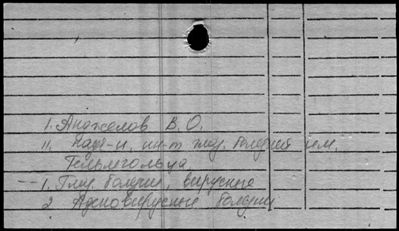 1. Анджелов В.О.
11. Кафе-и, ин-т глаз. болезней им.
Гельмгольца
1. Глаз. болезни, вирусные
2. Аденовирусные болезни